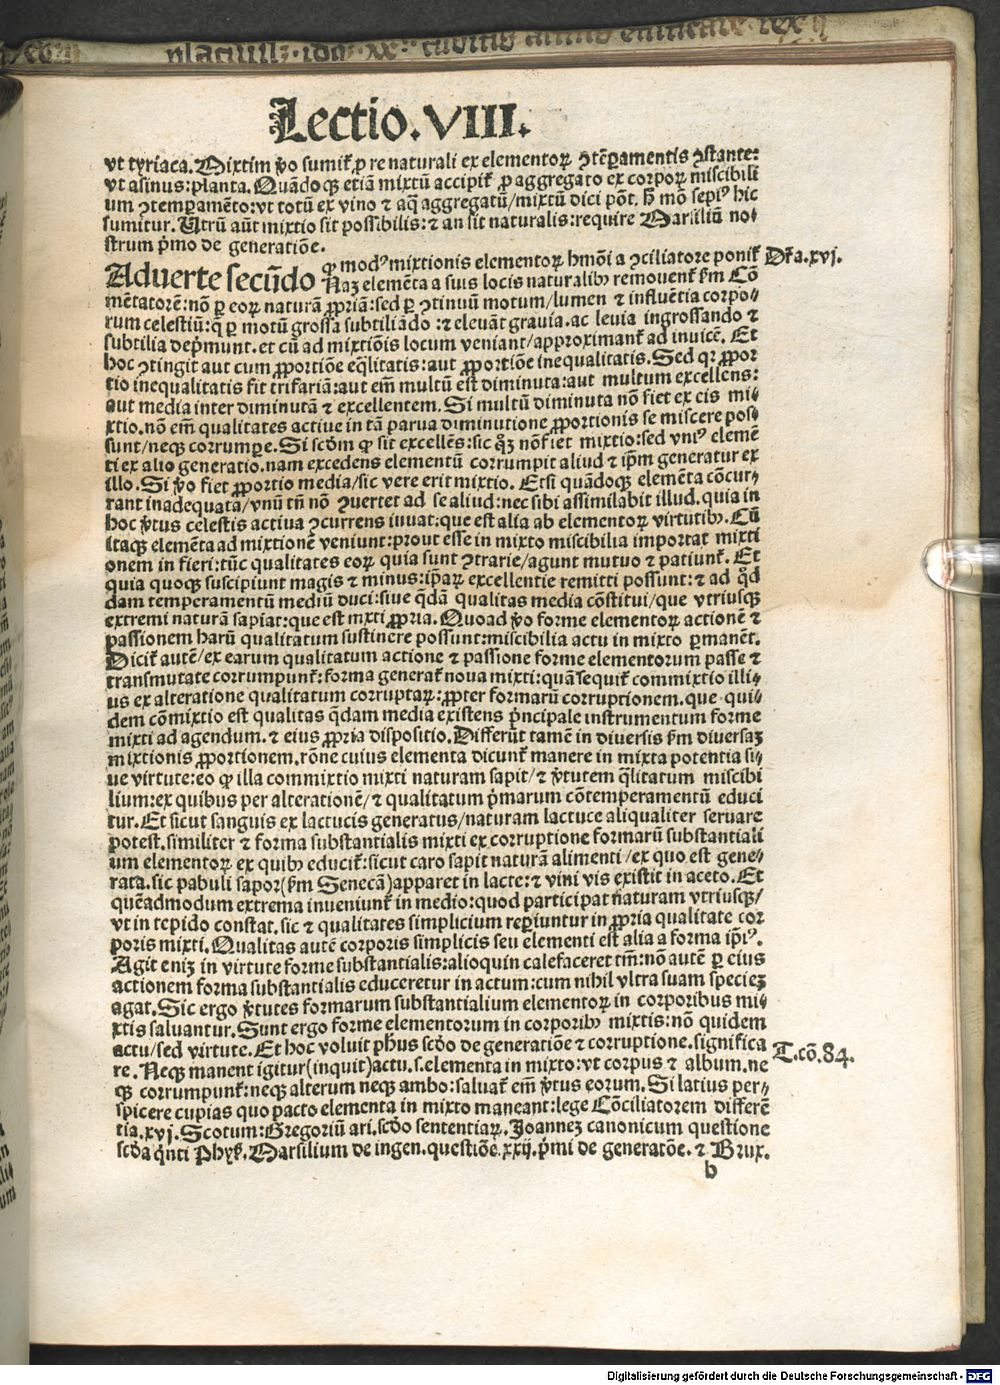 Lectio.VIII.
vt tyriaca. Mixtim v̾o sumit᷑ ꝓ re naturali ex elementoꝝ ꝯtẽꝑamentis ꝯstante:
vt asinus: planta. Quãdoqꝫ etiã mixtũ accipit᷑ ꝓ aggregato ex corpoꝝ miscibili
um ꝯtemꝑamẽto: vt totũ ex vino ⁊ aq̃ aggregatũ/mixtũ dici põt. hͦ mõ sepiꝰ hic
sumitur. Utrũ aũt mixtio sit possibilis: ⁊ an sit naturalis: require Marsiliũ no⸗
strum p̾mo de generatiõe.
Aduerte secũdo ꝙ modꝰ mixtionis elementoꝝ hmõi a ꝯciliatore ponit᷑
Dr̃a.xvj.
Naꝫ elemẽta a suis locis naturalibꝫ remouent᷑ ẜm Cõ
mẽtatorẽ: nõ ꝑ eoꝝ naturã ꝓpriã: sed ꝑ ꝯtinuũ motum/lumen ⁊ influẽtia corpo⸗
rum celestiũ: q̃ ꝑ motũ grossa subtiliãdo: ⁊ eleuãt grauia. ac leuia ingrossando ⁊
subtilia dep̾munt. et cũ ad mixtiõis locum veniant/approximant᷑ ad inuicẽ. Et
hoc ꝯtingit aut cum ꝓportiõe eq̃litatis: aut ꝓportiõe inequalitatis. Sed qꝛ ꝓpor
tio inequalitatis fit trifariã: aut em̃ multũ est diminuta: aut multum excellens:
aut media inter diminutã ⁊ excellentem. Si multũ diminuta nõ fiet ex eis mi⸗
xtio. nõ em̃ qualitates actiue in tã parua diminutione ꝓportionis se miscere pos⸗
sunt/neqꝫ corrumꝑe. Si scðm ꝙ sit excellẽs: sic q̾ꝫ nõ fiet mixtio: sed vniꝰ elemẽ
ti ex alio generatio. nam excedens elementũ corrumpit aliud ⁊ ip̃m generatur ex
illo. Si v̾o fiet ꝓportio media/sic vere erit mixtio. Etsi quãdoqꝫ elemẽta cõcur⸗
rant inadequata/vnũ tñ nõ ꝯuertet ad se aliud: nec sibi assimilabit illud. quia in
hoc v̾tus celestis actiua ꝯcurrens iuuat: que est alia ab elementoꝝ virtutibꝫ. Cũ
itaqꝫ elemẽta ad mixtionẽ veniunt: prout esse in mixto miscibilia importat mixti
onem in fieri: tũc qualitates eoꝝ quia sunt ꝯtrarie/agunt mutuo ⁊ patiunt᷑. Et
quia quoqꝫ suscipiunt magis ⁊ minus: ip̃aꝝ excellentie remitti possunt: ⁊ ad q̾d
dam temperamentũ mediũ duci: siue q̃dã qualitas media cõstitui/que vtriusqꝫ
extremi naturã sapiat: que est mxti ꝓpria. Quoad v̾o forme elementoꝝ actionẽ ⁊
passionem harũ qualitatum sustinere possunt: miscibilia actu in mixto ꝑmanẽt.
Dicit᷑ autẽ/ex earum qualitatum actione ⁊ passione forme elementorum passe ⁊
transmutate corrumpunt᷑: forma generat᷑ noua mixti: quã seq̃uit᷑ commixtio illi⸗
us ex alteratione qualitatum corruptaꝝ: ꝓpter formarũ corruptionem. que qui⸗
dem cõmixtio est qualitas q̃dam media existens p̾ncipale instrumentum forme
mixti ad agendum. ⁊ eius ꝓpria dispositio. Differũt tamẽ in diuersis ẜm diuersaꝫ
mixtionis ꝓportionem. rõne cuius elementa dicunt᷑ manere in mixta potentia si⸗
ue virtute: eo ꝙ illa commixtio mixti naturam sapit/⁊ v̾tutem q̃litatum miscibi
lium: ex quibus per alterationẽ/⁊ qualitatum p̾marum cõtemperamentũ educi
tur. Et sicut sanguis ex lactucis generatus/naturam lactuce aliqualiter seruare
potest. similiter ⁊ forma substantialis mixti ex corruptione formarũ substantiali
um elementoꝝ. ex quibꝫ educit᷑: sicut caro sapit naturã alimenti/ex quo est gene⸗
rata. sic pabuli sapor(ẜm Senecã)apparet in lacte: ⁊ vini vis existit in aceto. Et
quẽadmodum extrema inueniunt᷑ in medio: quod participat naturam vtriusqꝫ/
vt in tepido constat. sic ⁊ qualitates simplicium reꝑiuntur in ꝓpria qualitate cor
poris mixti. Qualitas autẽ corporis simplicis seu elementi est alia a forma ip̃iꝰ.
Agit eniꝫ in virtute forme substantialis: alioquin calefaceret tm̃: nõ autẽ ꝑ eius
actionem forma substantialis educeretur in actum: cum nihil vltra suam specieꝫ
agat. Sic ergo v̾tutes formarum substantialium elementoꝝ in corporibus mi⸗
xtis saluantur. Sunt ergo forme elementorum in corporibꝫ mixtis: nõ quidem
actu/sed virtute. Et hoc voluit ph̃us scðo de generatiõe ⁊ corruptione. significa
T.cõ.84.
re. Neqꝫ manent igitur(inquit)actu.s.elementa in mixto: vt corpus ⁊ album. ne
qꝫ corrumpunt᷑: neqꝫ alterum neqꝫ ambo: saluat᷑ em̃ v̾tus eorum. Si latius per⸗
spicere cupias quo pacto elementa in mixto maneant: lege Cõciliatorem differẽ
tia.xvj. Scotum: Gregoriũ ari. scðo sententiaꝝ. Joanneꝫ canonicum questione
scða q̾nti Phyẜ. Marsilium de ingen. questiõe.xxij. p̾mi de generatõe. ⁊ Brux.
b
Digitalisierung gefördert durch die Deutsche Forschungsgemeinschaft - DFG